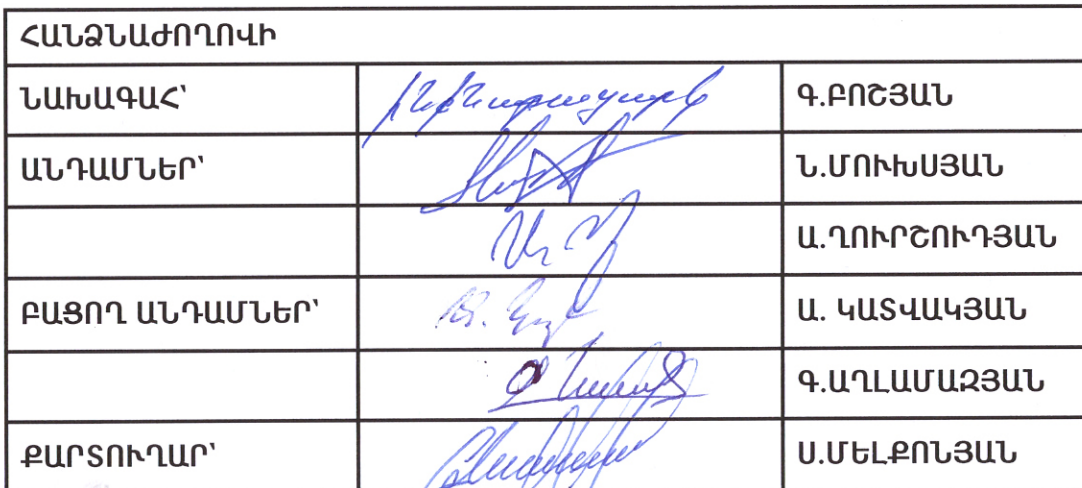 ՀԱՆՁՆԱԺՈՂՈՎԻ
ՆԱԽԱԳԱՀ՝ Գ.ԲՈՇՅԱՆ
ԱՆԴԱՄՆԵՐ՝ Ն.ՄՈՒԽՍՅԱՆ
Ա.ՂՈՒՐՇՈՒԴՅԱՆ
ԲԱՑՈՂ ԱՆԴԱՄՆԵՐ՝ Ա. ԿԱՏՎԱԿՅԱՆ
Գ.ԱՂԼԱՄԱԶՅԱՆ
ՔԱՐՏՈՒՂԱՐ՝ Ս.ՄԵԼՔՈՆՅԱՆ